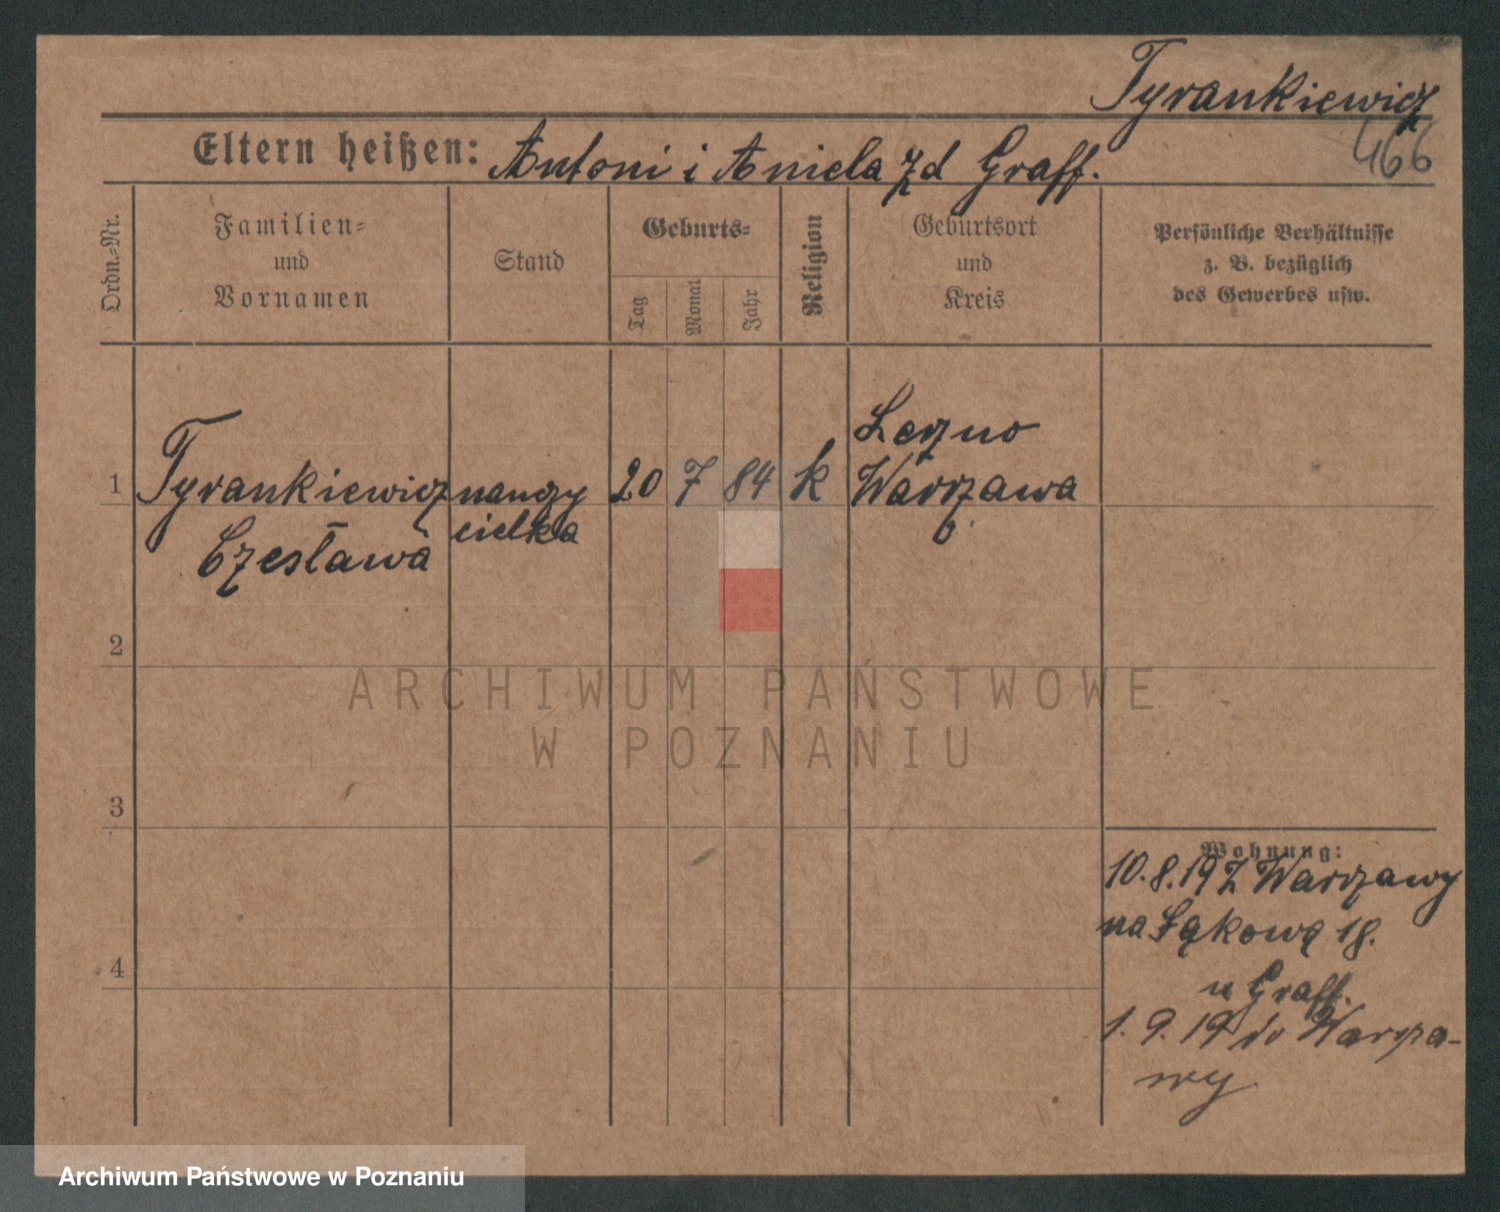 Tyrankiewicz
466
Eltern heißen: Antoni i Aniela zd Graff.
Ordn.-Nr.
Familien-
und
Vornamen
Stand
Geburts-
Tag
Monat
Jahr
Religion
Geburtsort
und
Kreis
Persönliche Verhältnisse
z. B. bezüglich
des Gewerbes usw.
Leszno
1 Tyrankiewicz nauczy 20 7 84 k Warszawa
Czesława cielka
2
ARCHIWUM PAŃSTWOWE
W POZNANIU
3
Wohnung:
10.8.19 z Warszawy
na Łąkową 18.
4
u Graff.
1.9.19 do Warsza-
wy.
Archiwum Państwowe w Poznaniu